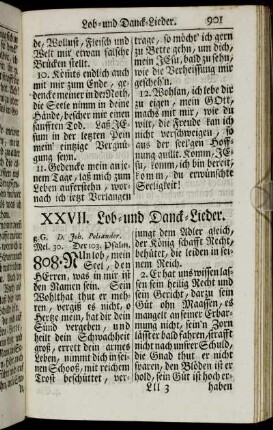 Lob- und Danck-Lieder. 901
de, Wollust, Fleisch und
Welt mir etwan falsche
Brücken stellt.
10. Kömts endlich auch
mit mir zum Ende, ge-
dencke meiner in der Noth,
die Seele nimm in deine
Hände, bescher mir einen
sanfften Tod. Laß JE-
sum in der letzten Pein
mein' eintzige Vergnü-
gung seyn.
11. Gedencke mein an je-
nem Tage, laß mich zum
Leben aufersteh, wor-
nach ich jetzt Verlangen
trage, so möcht' ich gern
zu Bette gehn, um dich,
mein JEsu, bald zu sehn,
wie die Verheissung mir
geschehn.
12. Wohlan, ich lebe dir
zu eigen, mein GOtt,
machs mit mir, wie du
wilt, die Freude kan ich
nicht verschweigen, so
aus der seel'gen Hoff-
nung quillt. Komm, JE-
su, komm, ich bin bereit,
komm, du erwünschte
Seeligkeit!
XXVII. Lob- und Danck-Lieder.
g. G. D. Joh. Poliander.
Mel. 30. Der 103. Psalm.
808. NUn lob, mein
Seel, den
HErren, was in mir ist
den Namen sein. Sein
Wohlthat thut er meh-
ren, vergiß es nicht, o
Hertze mein, hat dir dein
Sünd vergeben, und
heilt dein Schwachheit
groß, errett dein armes
Leben, nimmt dich in sei-
nen Schooß, mit reichem
Trost beschüttet, ver-
jüngt dem Adler gleich,
der König schafft Recht,
behütet, die leiden in sei-
nem Reich.
2. Er hat uns wissen las-
sen sein heilig Recht und
sein Gericht, darzu sein
Güt ohn Maassen, es
mangelt an seiner Erbar-
mung nicht, sein'n Zorn
läßt er bald fahren, strafft
nicht nach unsrer Schuld,
die Gnad thut er nicht
sparen, den Blöden ist er
hold, sein Güt ist hoch er-
Lll 3 haben